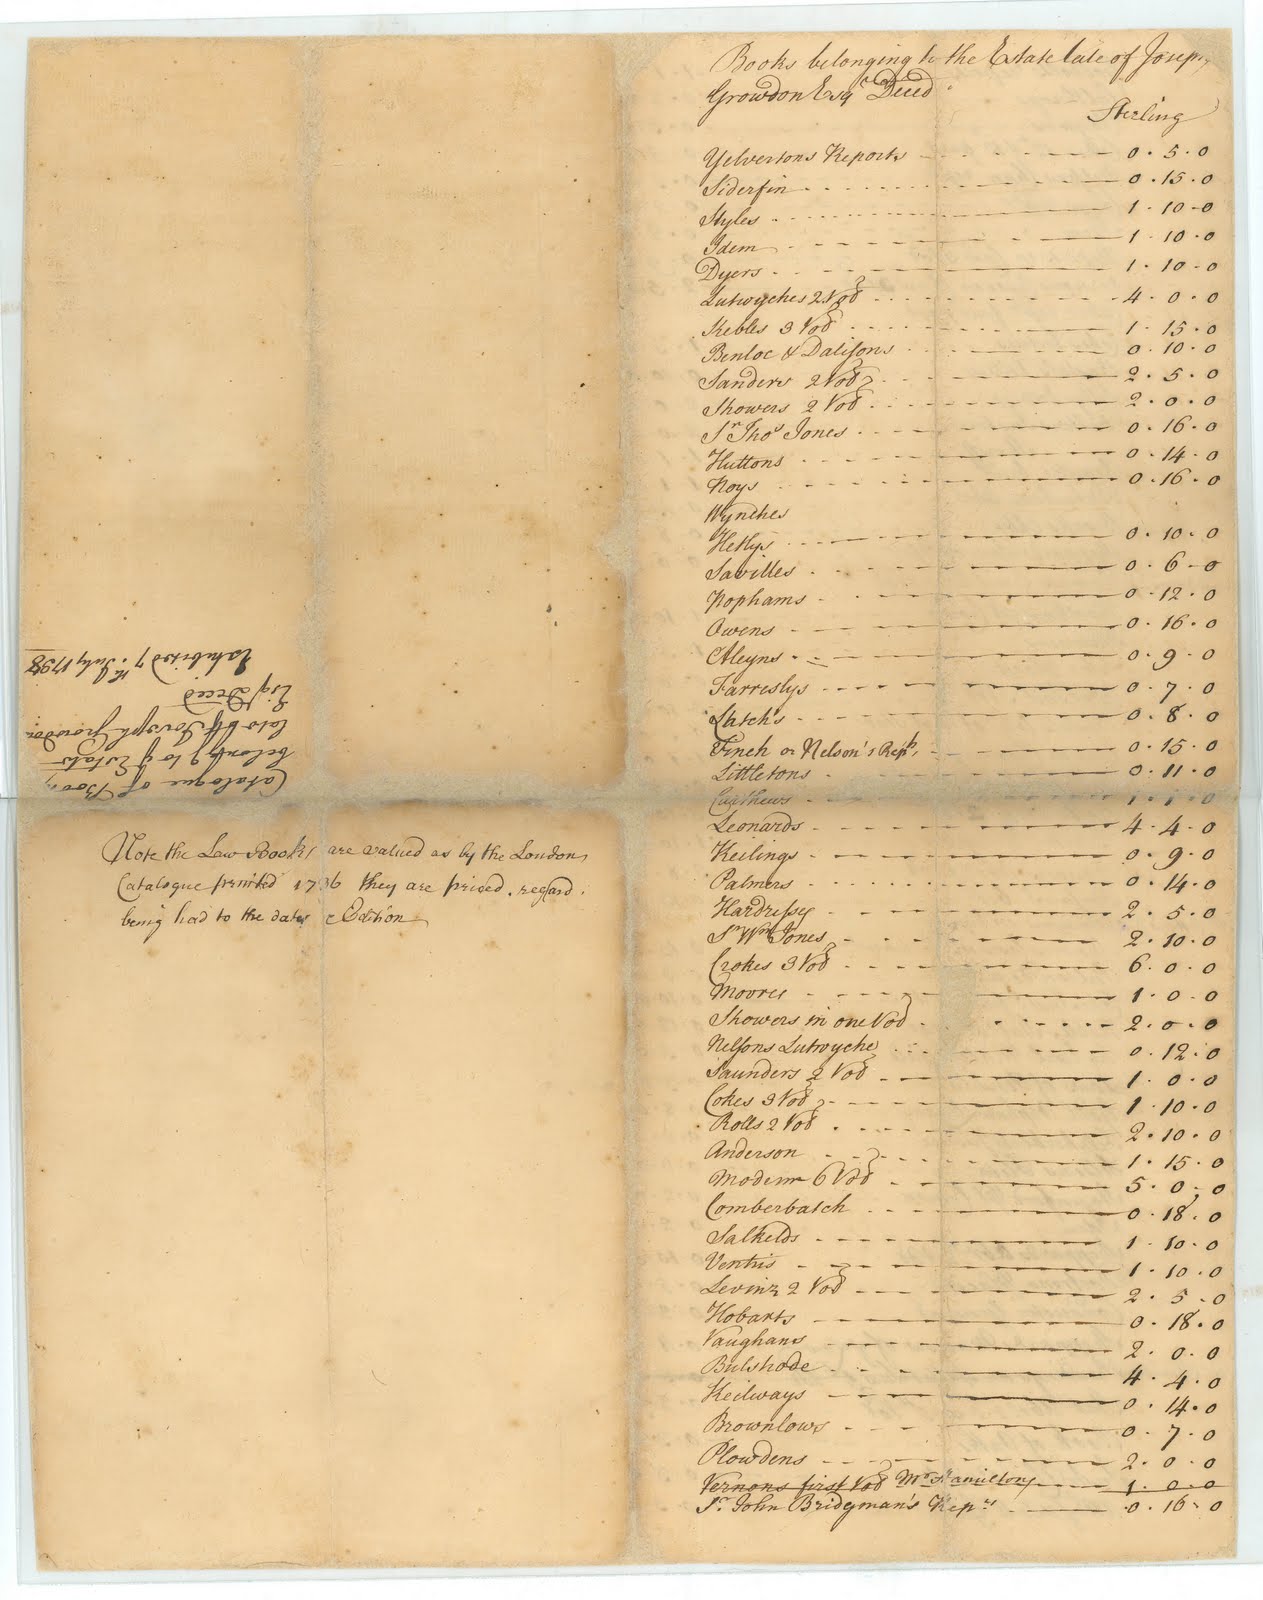 Books belonging to the Estate late of Joseph
Growdon Esqr Deced
Sterling
Yelvertons Reports 0 . 5 . 0
Siderfin 0 . 15 . 0
Styles 1 . 10 - 0
Idem 1 . 10 . 0
Dyers 1 . 10 - 0
Lutwyches 2 Vol 4 . 0 . 0
Kebles 3 Vol 1 . 15 . 0
Benloe & Dalisons 0 . 10 . 0
Sanders 2 Vol 2 . 5 . 0
Showers 2 Vol 2 . 0 . 0
Sr Thos Jones 0 . 16 . 0
Huttons 0 . 14 . 0
Noys 0 . 16 . 0
Wynches
Hetlys 0 . 10 . 0
Savilles 0 . 6 - 0
Pophams 0 . 12 . 0
Owens 0 . 16 . 0
Aleyns 0 . 9 . 0
Farreslys 0 . 7 . 0
Latch's 0 . 8 . 0
Finch or Nelson's Repts 0 . 15 . 0
Littletons 0 . 11 . 0
1 . 1 . 0
Leonards 4 . 4 . 0
Keilings 0 . 9 . 0
Palmers 0 . 14 . 0
Hardressy 2 . 5 . 0
Sr Wm Jones 2 . 10 . 0
Crokes 3 Vol 6 . 0 . 0
Moores 1 . 0 . 0
Showers in one Vol 2 . 0 . 0
Nelsons Lutwyche 0 . 12 . 0
Saunders 2 Vol 1 . 0 . 0
Cokes 3 Vol 1 . 10 . 0
Rolls 2 Vol 2 . 10 . 0
Anderson 1 . 15 . 0
Modern 6 Vol 5 . 0 . 0
Comberbatch 0 . 18 . 0
Salkelds 1 . 10 . 0
Ventris 1 . 10 . 0
Levinz 2 Vol 2 . 5 - 0
Hobarts 0 . 18 . 0
Vaughans 2 . 0 . 0
Bulstrode 4 . 4 . 0
Keilways 0 . 14 . 0
Brownlows 0 . 7 . 0
Plowdens 2 . 0 . 0
Vernons first Vol Mr Hamiltons 1 . 0 . 0
Sr John Bridgman's Reps 0 . 16 . 0
Catalogue of Books
belong'g to ye Estate
late of Joseph Growdon
Esqr Deced
Exhibited 7th July 1738
Note the Law Books are valued as by the London
Catalogue printed 1736 they are priced, regard
being had to the date Edition